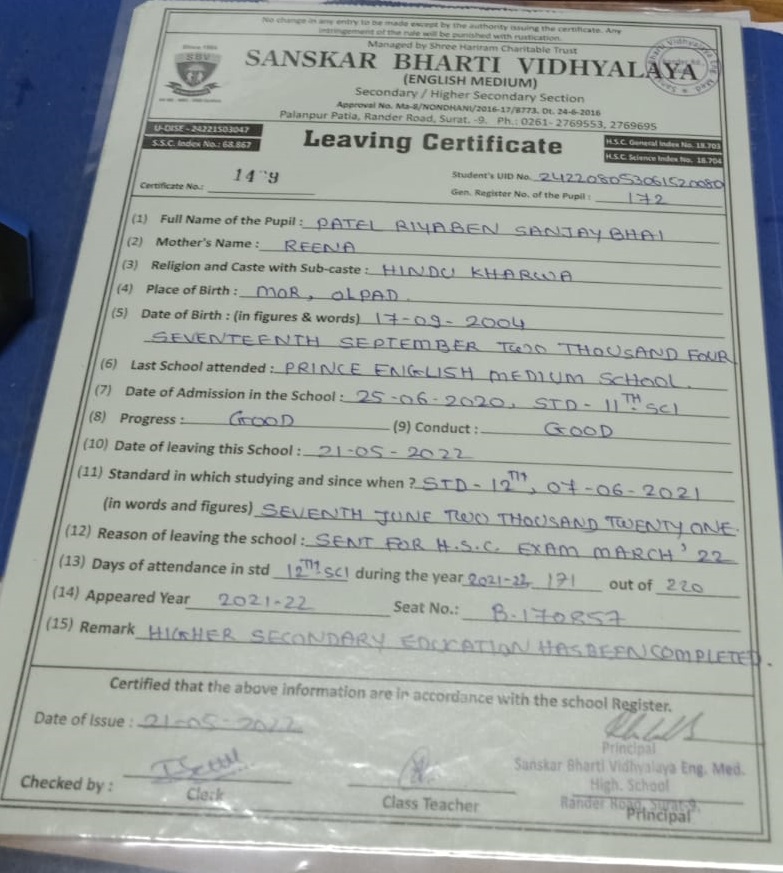 No change in any entry to be made except by the authority issuing the certificate. Any
intringement of the rule will be punished with rustication.
Managed by Shree Hariram Charitable Trust
Since 1992
SBV
SANSKAR BHARTI VIDHYALAYA
(ENGLISH MEDIUM)
Secondary / Higher Secondary Section
Approval No. Ma-8/NONDHANI/2016-17/8773, Dt. 24-6-2016
Palanpur Patia, Rander Road, Surat. -9. Ph.: 0261- 2769553, 2769695
U-DISE - 24221503047
S.S.C. Index No.: 68.867
Leaving Certificate
H.S.C. General Index No. 18.703
H.S.C. Science Index No. 18.704
Certificate No.:
Student's UID No. 242208053061520080
Gen. Register No. of the Pupil : 172
(1) Full Name of the Pupil : PATEL RIYABEN SANJAYBHAI
(2) Mother's Name : REENA
(3) Religion and Caste with Sub-caste : HINDU KHARWA
(4) Place of Birth : MOR, OLPAD.
(5) Date of Birth : (in figures & words) 17-09-2004
SEVENTEENTH SEPTEMBER TWO THOUSAND FOUR
(6) Last School attended : PRINCE ENGLISH MEDIUM SCHOOL.
(7) Date of Admission in the School : 25-06-2020, STD-11TH SCI
(8) Progress : GOOD (9) Conduct : GOOD
(10) Date of leaving this School : 21-05-2022
(11) Standard in which studying and since when ? STD-12TH, 07-06-2021
(in words and figures) SEVENTH JUNE TWO THOUSAND TWENTY ONE.
(12) Reason of leaving the school : SENT FOR H.S.C. EXAM MARCH'22
(13) Days of attendance in std 12TH SCI during the year 2021-22 171 out of 220
(14) Appeared Year 2021-22 Seat No.: B-170857
(15) Remark HIGHER SECONDARY EDUCATION HAS BEEN COMPLETED.
Certified that the above information are in accordance with the school Register.
Date of Issue : 21-05-2022
Principal
Sanskar Bharti Vidhyalaya Eng. Med.
High. School
Rander Road, Surat-9.
Checked by :
Clerk
Class Teacher
Principal